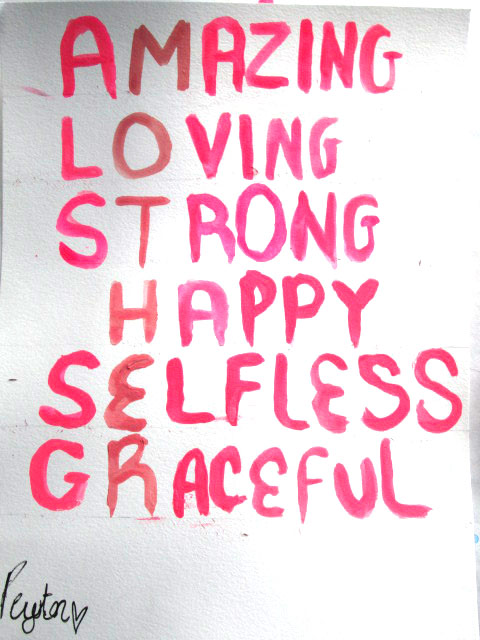 AMAZING
LOVING
STRONG
HAPPY
SELFLESS
GRACEFUL
Peyton